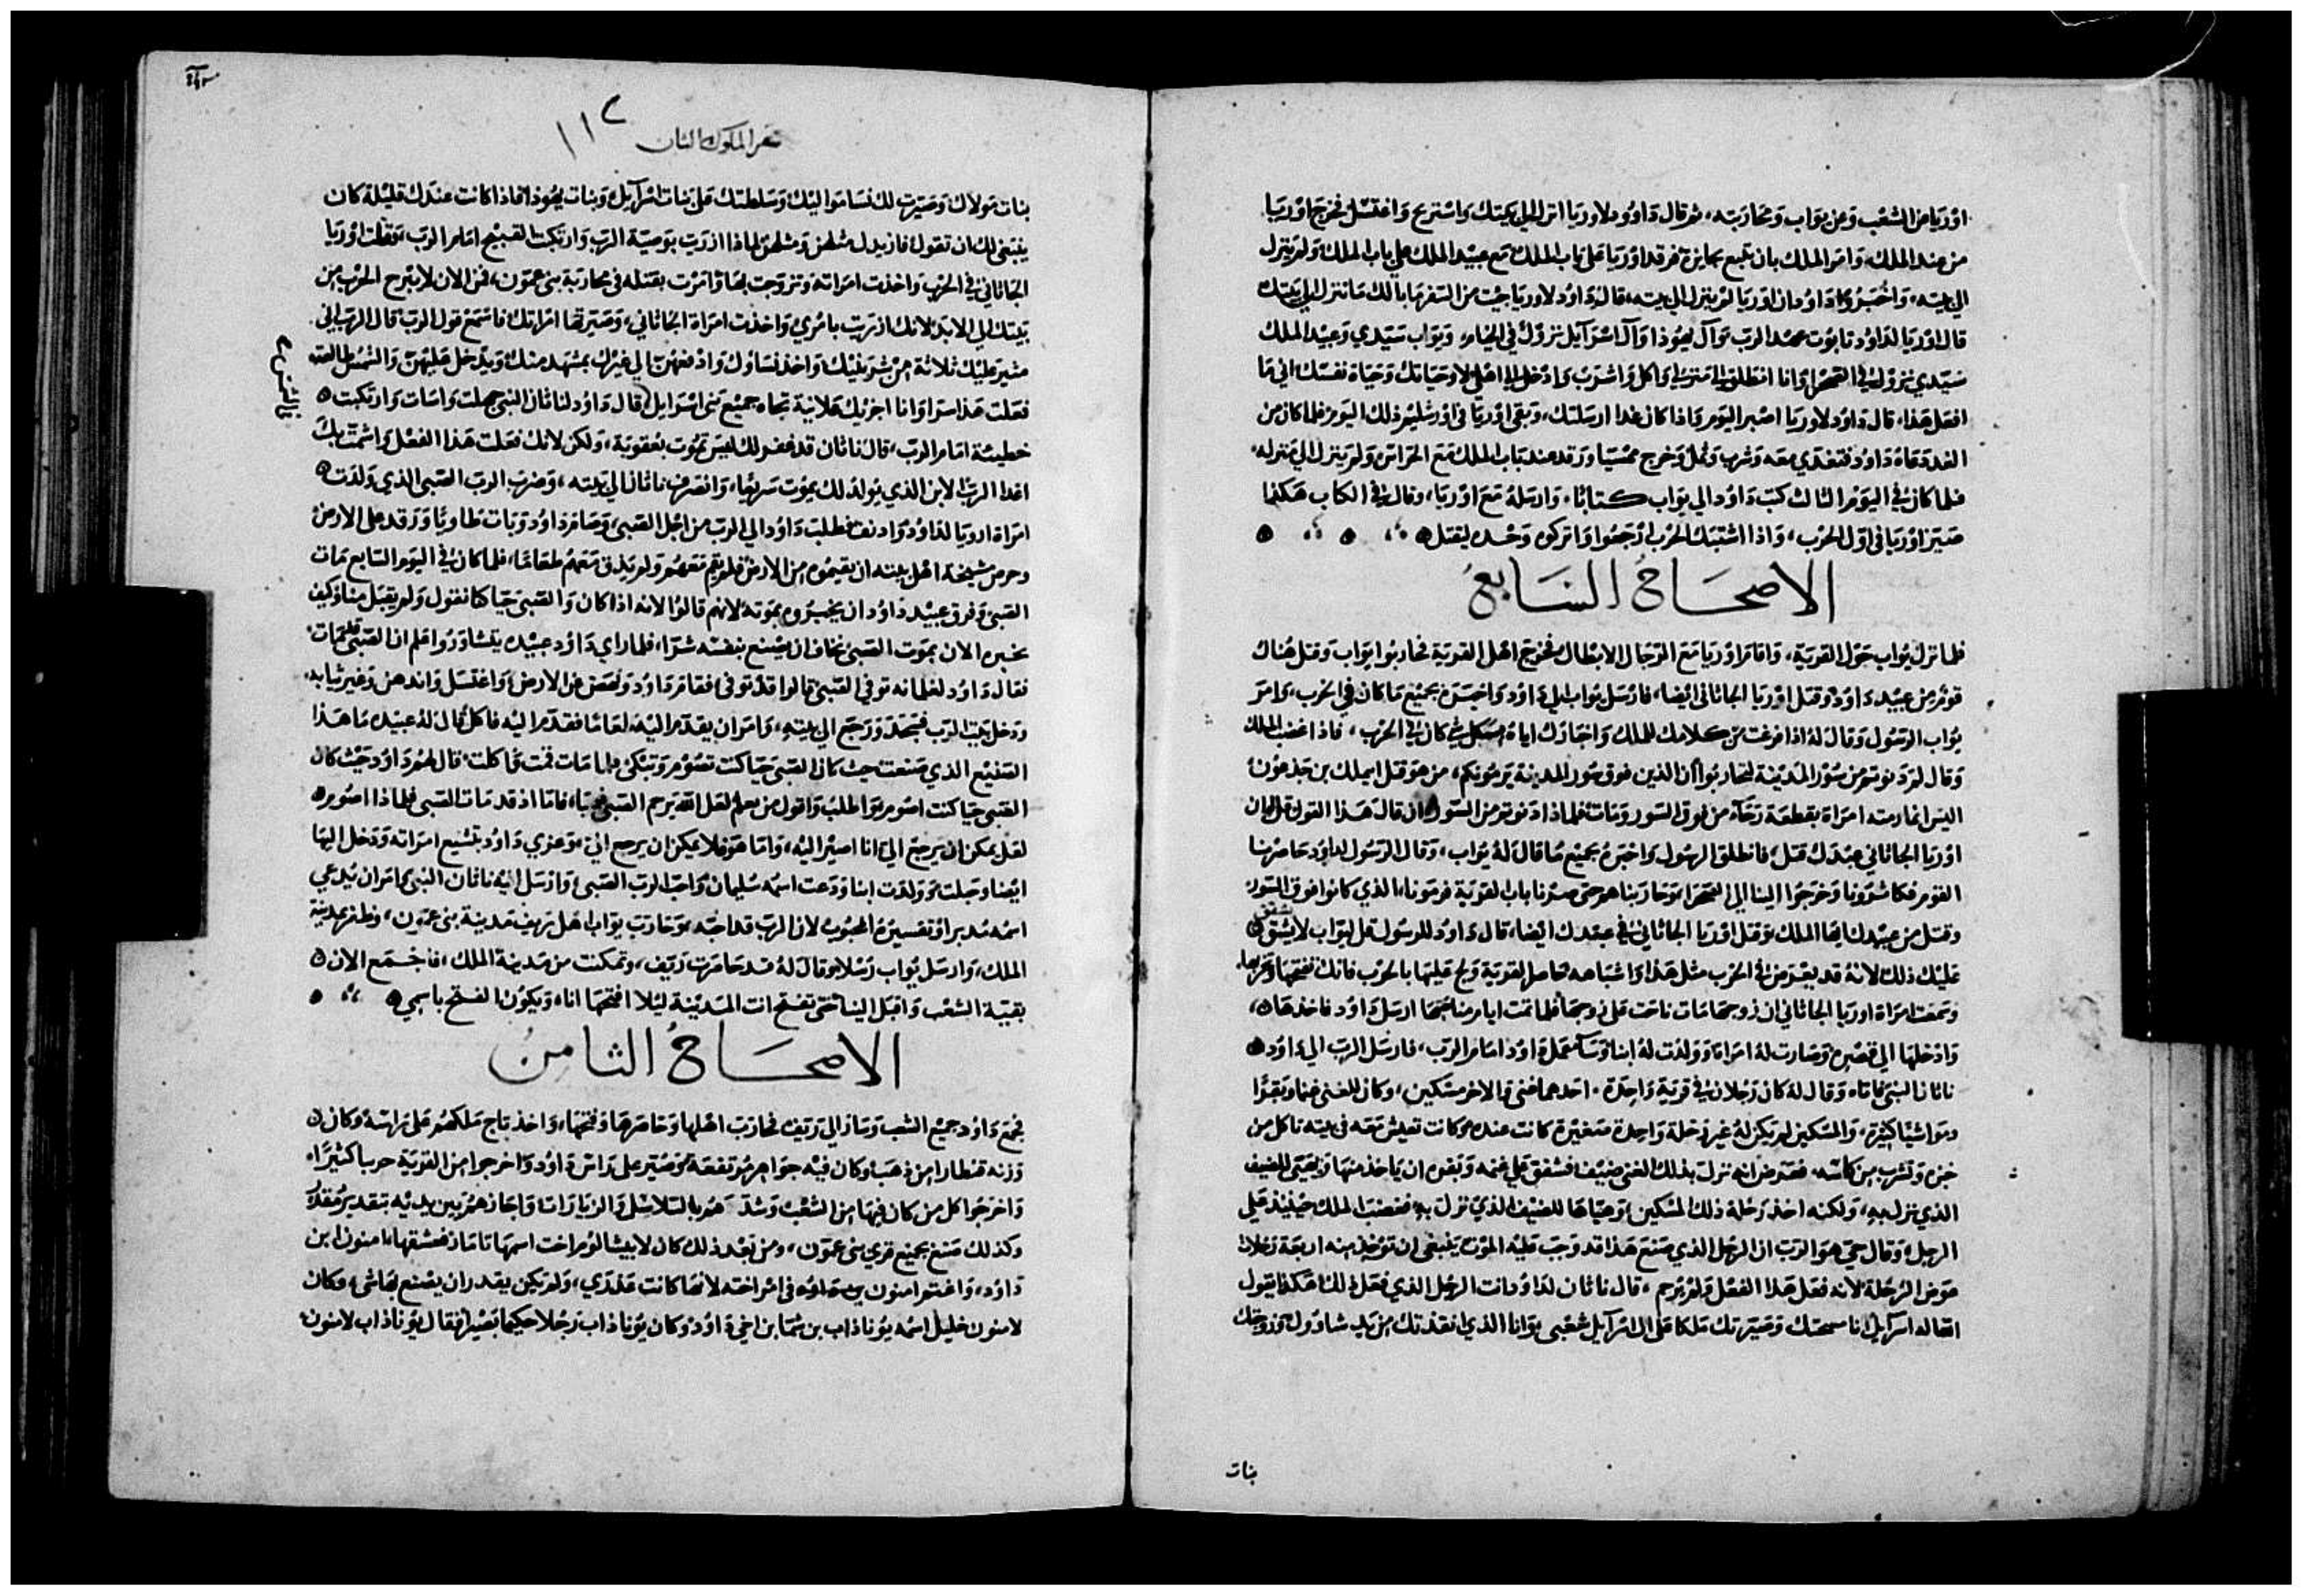 اوريا من الشعب وعن يواب ومحاربته، ثم قال داوود لاوريا انزل الي بيتك واستريح واغتسل فخرج اوريا
من عند الملك، وامر الملك بان يتبع بجايزة فرقد اوريا على باب الملك مع عبيد الملك علي باب الملك ولم ينزل
الي بيته، واخبروا داود ان اوريا لم ينزل الي بيته، قال داود لاوريا جيت من السفر ما بالك ما تنزل الي بيتك
قال اوريا لداود تابوت عهد الرب وآل يهوذا وآل اسرآيل نزول في الخيام، ويواب سيدي وعبيد الملك
سيدي نزول في الصحرا وانا انطلق الي منزلي واكل واشرب وادخل الي اهلي لا وحياتك وحياة نفسك اني ما
افعل هذا، قال داود لاوريا اصبر اليوم واذا كان غدا ارسلتك، وبقي اوريا في اورشليم ذلك اليوم فلما كان من
الغد دعاه داود فتغدي معه وشرب وثمل وخرج ممسيا ورقد عند باب الملك مع الحراس ولم ينزل الي منزله،
فلما كان في اليوم الثالث كتب داود الي يواب كتابا، وارسله مع اوريا، وقال في الكتاب هكذا
صير اوريا في اول الحرب، واذا اشتبك الحرب ارجعوا واتركوه وحده ليقتل
الاصحاح السابع
فلما نزل يواب حول القرية، واقام اوريا مع الرجال الابطال فخرج اهل القرية فحاربوا يواب وقتل هناك
قوم من عبيد داود وقتل اوريا الجاثاني ايضا، فارسل يواب الي داود واخبره بجميع ما كان في الحرب، وامر
يواب الرسول وقال له اذا فرغت من كلامك للملك واخبارك اياه بكل شي كان في الحرب، فاذا غضب الملك
وقال لم دنوتم من سور المدينة لتحاربوا ان الذين فوق سور المدينة يرمونكم، من هو قتل ابيملك بن جدعون
اليس انما رمته امراة بقطعة رحآه من فوق السور ومات فلماذا دنوتم من السور ان قال هذا القول قل ان
اوريا الجاثاني عبدك قتل، فانطلق الرسول واخبره بجميع ما قال له يواب، وقال الرسول لداود حاصرنا
القوم فكاشرونا وخرجوا الينا الي الصحرا وحاربناهم حتى صرنا باب القرية فرمونا الذي كانوا فوق السور
وقتل من عبيدك ايها الملك وقتل اوريا الجاثاني عبدك ايضا، قال داود للرسول قل ليواب لا يشق
عليك ذلك لانه قد يعرض في الحرب مثل هذا واشباهه حاصر القرية ولج عليها بالحرب فانك تفتحها وتخربها،
وسمعت امراة اوريا الجاثاني ان زوجها مات ناحت على زوجها فلما تمت ايام مناحتها ارسل داود فاخذها
وادخلها الي قصره وصارت له امراة وولدت له ابنا وسآ عمل داود امام الرب، فارسل الرب الي داود
ناثان النبي فاتاه وقال له كان رجلان في قرية واحدة، احدهما غني والاخر مسكين، وكان للغني غنما وبقرًا
ومواشيا كثيرة، والمسكين لم يكن له غير رخلة واحدة صغيرة كانت عنده وكانت تعيش معه في بيته تاكل من
خبزه وتشرب من كاسه، فعرض انه نزل بذلك الغني ضيف فشفق علي غنمه وبقره ان ياخذ منها ويهيي للضيف
الذي نزل به، ولكنه اخذ رخلة ذلك المسكين وهياها للضيف الذي نزل به فغضب الملك حينيذ علي
الرجل وقال حي هو الرب ان الرجل الذي صنع هذا قد وجب عليه الموت ينبغي ان توخذ منه اربعة رخلات
عوض الرخلة لانه فعل هذا الفعل ولم يرحم، قال ناثان لداود انت الرجل الذي فعل ذلك هكذا يقول
اله اسرآيل انا مسحتك وصيرتك ملكا على آل اسرآيل شعبي وانا الذي انقذتك من يد شاوول وزوجتك
بنات
سفر الملوك الثان
١١٢
بنات مولاك وصيرت لك نسا مواليك وسلطتك على بنات اسرآييل وبنات يهوذا فاذا كانت عندك قليلة كان
ينبغي لك ان تقول فازيدك مثلهن ومثلهن لماذا ازريت بوصية الرب وارتكبت القبيح امام الرب وقتلت اوريا
الجاثاني في الحرب واخذت امراته وتزوجت بها وامرت بقتله في محاربة بني عمون، فمن الان لا يبرح الحرب من
بيتك الي الابد لانك ازريت بامري واخذت امراة الجاثاني، وصيرتها امراتك فاسمع قول الرب قال الرب اني
مثير عليك ثلاثة من شر بنيك واخذ نساوك وادفعهن الي غيرك بمشهد منك ويدخل عليهن والشمس طالعه
فعلت هذا سرا وانا اجزيك علانية تجاه جميع بني اسرايل قال داود لناثان النبي جهلت واسات وارتكبت
خطيئة امام الرب، قال ناثان قد غفر لك ليس تموت بعقوبة، ولكن لانك فعلت هذا الفعل واشمت بك
اعدا الرب الابن الذي يولد لك يموت سريعا، وانصرف ناثان الي بيته، وضرب الرب الصبي الذي ولدت
امراة اوريا لداود وادنف فطلب داود الي الرب من اجل الصبي، وصام داود وبات طاويا ورقد على الارض
وحرص شيخة اهل بيته ان يقيموه من الارض فلم يقم معهم ولم يذق معهم طعاما، فلما كان في اليوم السابع مات
الصبي وفرق عبيد داود ان يخبروه بموته لانهم قالوا لانه اذا كان والصبي حيا كنا نقول ولم يقبل منا وكيف
نخبره الان بموت الصبي نخاف ان يصنع بنفسه شرا، فلما راي داود عبيده يتشاوروا علم ان الصبي قد مات
فقال داود لغلمانه توفي الصبي قالوا قد توفي فقام داود ونهض من الارض واغتسل واندهن وغير ثيابه
ودخل بيت الرب فسجد ورجع الي بيته، وامر ان يقدم اليه طعاما فقدم اليه فاكل قال له عبيده ما هذا
الصنيع الذي صنعت حيث كان الصبي حيا كنت تصوم وتبكي فلما مات قمت واكلت قال لهم داود حيث كان
الصبي حيا كنت اصوم واطلب واقول من يعلم لعل الله يرحم الصبي فاما اذ قد مات الصبي فلماذا اصوم
لعل يمكن ان يرجع الي انا اصير اليه، واما هو فلا يمكن ان يرجع الي، وعزي داود بتشبع امراته ودخل اليها
ايضا وحبلت وولدت ابنا ودعت اسمه سليمان واحب الرب الصبي وارسل اليه ناثان النبي وامر ان يدعي
اسمه يديرا وتفسيره المحبوب لان الرب قد احبه، وحارب يواب اهل رهيف مدينة بني عمون، وظفر بمدينة
الملك، وارسل يواب رسلا وقال له قد حاصرت ريف، وتمكنت من مدينة الملك، فاجمع الان
بقية الشعب واقبل الينا حتى تفتح انت المدينة ليلا افتحها انا، ويكون الفتح باسمي
الاصحاح الثامن
فجمع داود جميع الشعب وسار الي رتيف فحارب اهلها وحاصرها وفتحها، واخذ تاج ملكهم على راسه وكان
وزنه قنطارا من ذهب وكان فيه جواهر مرتفعة وصير على راس داود واخرجوا من القرية حربا كثيرًا
واخرجوا كل من كان فيها من الشعب وشدهم بالسلاسل والزيارات واجازهم بين يديه بتقدير مقدر
وكذلك صنع بجميع قري بني عمون، ومن بعد ذلك كان لابيشالوم اخت اسمها تامار فعشقها امنون ابن
داود، واغتم امنون بن داود في امر اخته لانها كانت عذري، ولم يكن يقدر ان يصنع بها شي، وكان
لامنون خليل اسمه يوناذاب بن شمعا بن اخي داود وكان يوناذاب رجلا حكيما بصيرا فقال يوناذاب لامنون